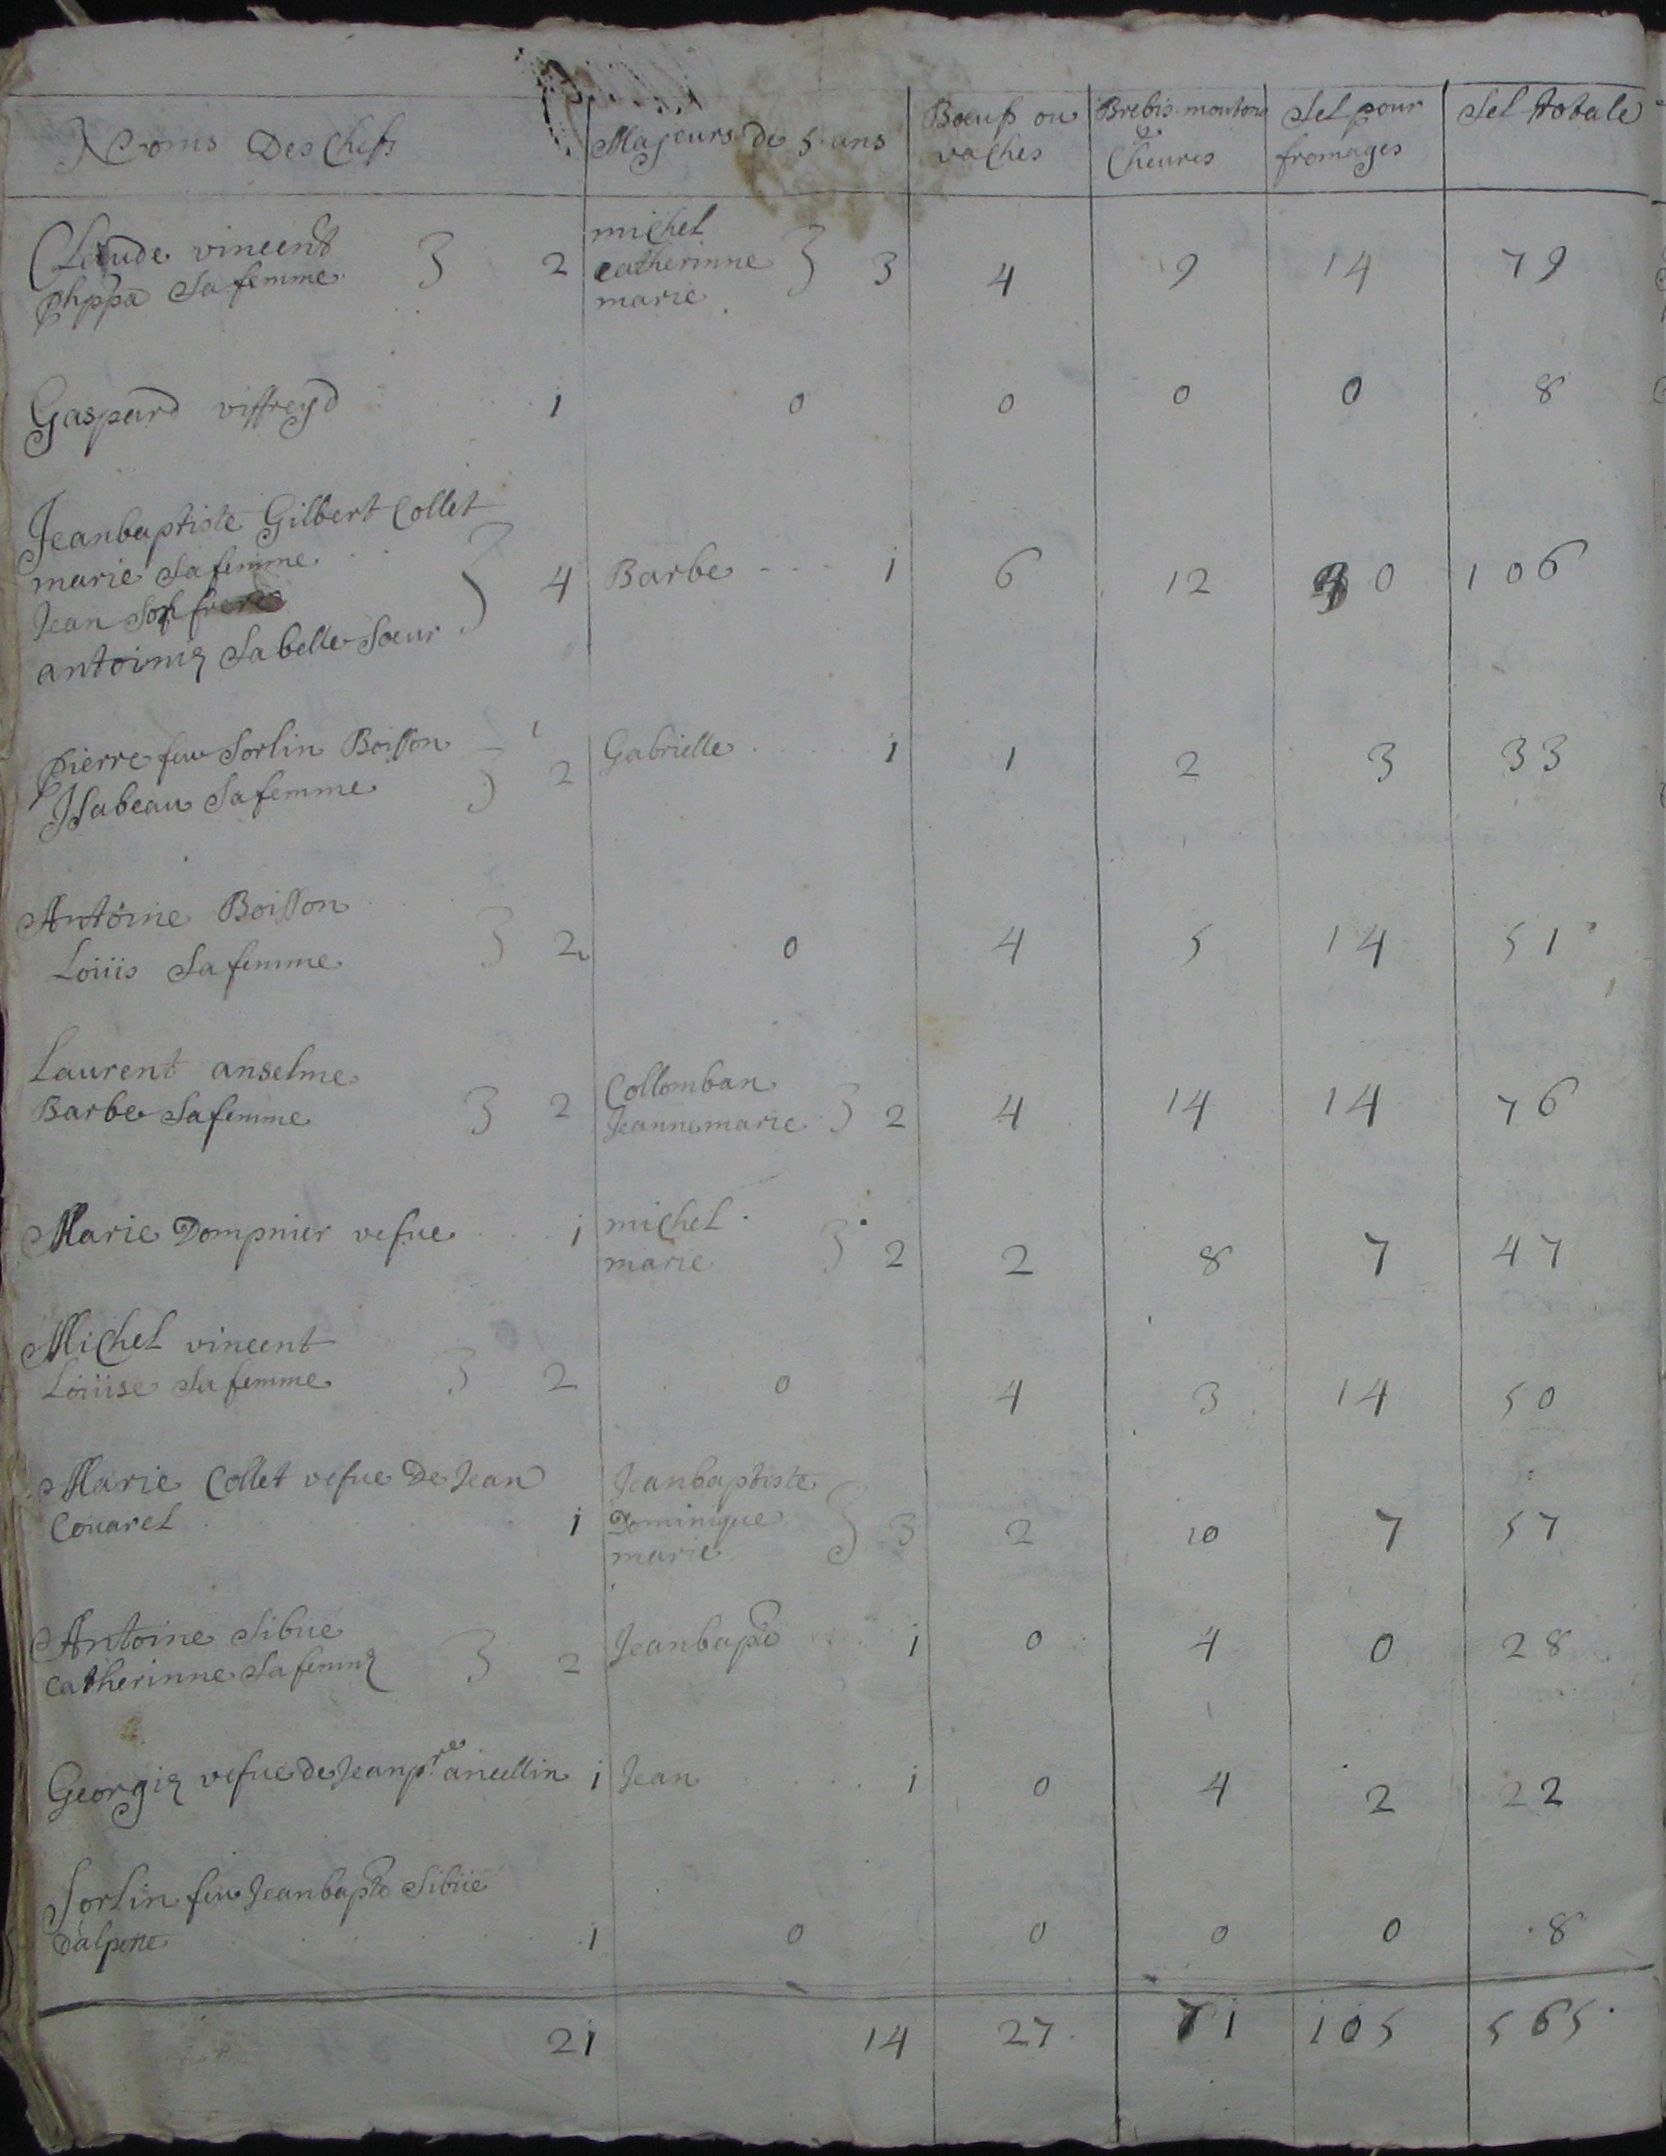 Noms Des Chefs | Majeurs de 5 ans | Boeufs ou vaches | Brebis moutons & Cheures | Sel pour fromages | Sel totale
Claude vincent
phppa Sa femme } 2 | michel catherinne marie } 3 | 4 | 9 | 14 | 79
Gaspard viffreyd 1 | 0 | 0 | 0 | 0 | 8
Jeanbaptiste Gilbert Collet
marie Sa femme
Jean Son frere
antoinz Sa belle Soeur } 4 | Barbe 1 | 6 | 12 | 30 | 106
pierre feu Sorlin Boisson
Isabeau Sa femme } 2 | Gabrielle 1 | 1 | 2 | 3 | 33
Antoine Boisson
Loüis Sa femme } 2 | 0 | 4 | 5 | 14 | 51
Laurent anselme
Barbe Sa femme } 2 | Collomban Jeannemarie } 2 | 4 | 14 | 14 | 76
Marie Dompnier vefue 1 | michel marie } 2 | 2 | 8 | 7 | 47
Michel vincent
Loüise Sa femme } 2 | 0 | 4 | 3 | 14 | 50
Marie Collet vefue De Jean
Couarel 1 | Jeanbaptiste Dominique marie } 3 | 2 | 10 | 7 | 57
Antoine Sibue
Catherinne Sa femmz } 2 | Jeanbapte 1 | 0 | 4 | 0 | 28
Georgiz vefue de Jean pre ancellin 1 | Jean 1 | 0 | 4 | 2 | 22
Sorlin feu Jeanbapte Sibüe
Dalpette 1 | 0 | 0 | 0 | 0 | 8
21 | 14 | 27 | 71 | 105 | 565